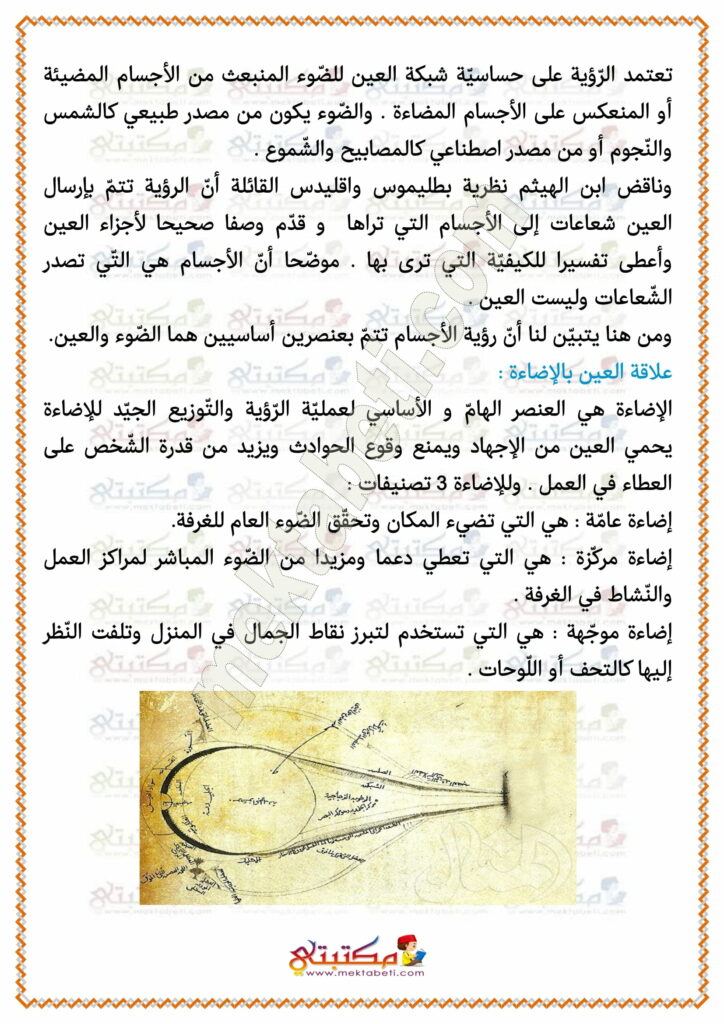 تعتمد الرّؤية على حساسيّة شبكة العين للضّوء المنبعث من الأجسام المضيئة
أو المنعكس على الأجسام المضاءة . والضّوء يكون من مصدر طبيعي كالشمس
والنّجوم أو من مصدر اصطناعي كالمصابيح والشّموع .
وناقض ابن الهيثم نظرية بطليموس واقليدس القائلة أنّ الرؤية تتمّ بإرسال
العين شعاعات إلى الأجسام التي تراها و قدّم وصفا صحيحا لأجزاء العين
وأعطى تفسيرا للكيفيّة التي ترى بها . موضّحا أنّ الأجسام هي التّي تصدر
الشّعاعات وليست العين .
ومن هنا يتبيّن لنا أنّ رؤية الأجسام تتمّ بعنصرين أساسيين هما الضّوء والعين.
علاقة العين بالإضاءة :
الإضاءة هي العنصر الهامّ و الأساسي لعمليّة الرّؤية والتّوزيع الجيّد للإضاءة
يحمي العين من الإجهاد ويمنع وقوع الحوادث ويزيد من قدرة الشّخص على
العطاء في العمل . وللإضاءة 3 تصنيفات :
إضاءة عامّة : هي التي تضيء المكان وتحقّق الضّوء العام للغرفة.
إضاءة مركّزة : هي التي تعطي دعما ومزيدا من الضّوء المباشر لمراكز العمل
والنّشاط في الغرفة .
إضاءة موجّهة : هي التي تستخدم لتبرز نقاط الجمال في المنزل وتلفت النّظر
إليها كالتحف أو اللّوحات .
mektabeti.com
مكتبتي
www.mektabeti.com